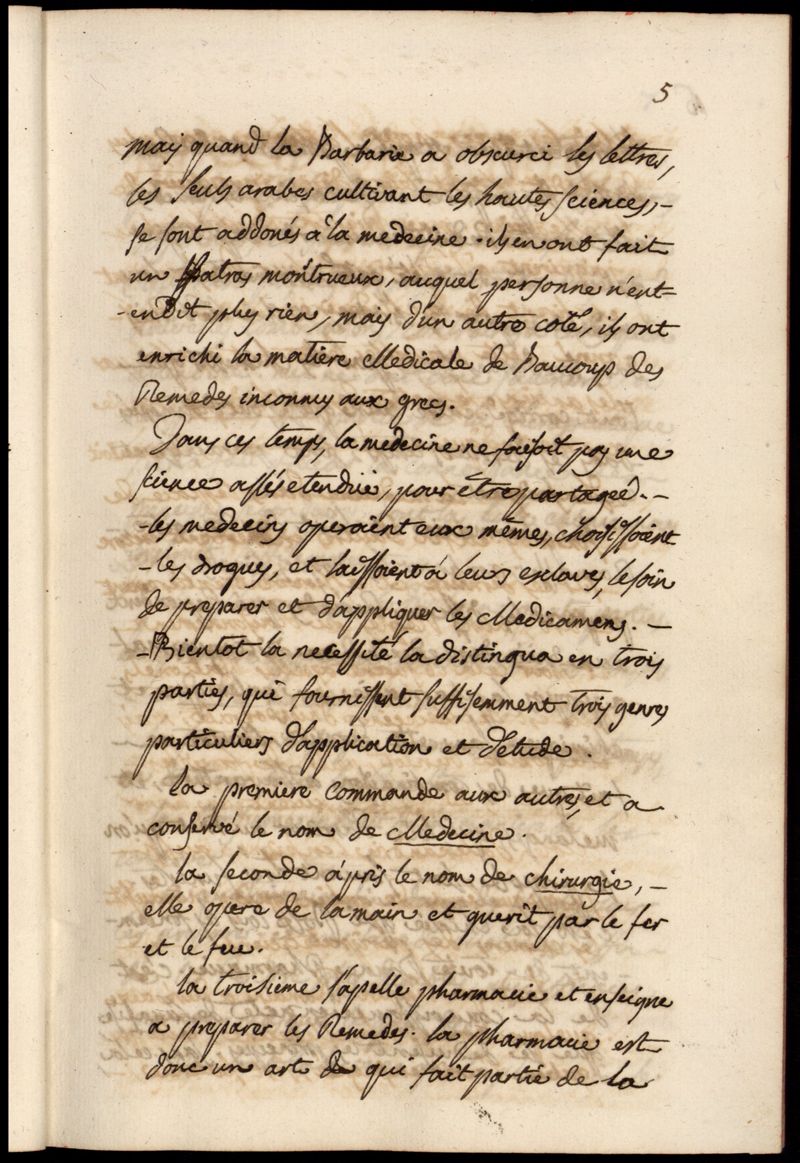 5
mais quand la Barbarie a obscurci les lettres,
les seuls arabes cultivant les hautes sciences,-
se sont addonés a la medecine . ils en ont fait
un fatras monstrueux, auquel personne n'ent=
-endit plus rien, mais d'un autre coté, ils ont
enrichi la matière Medicale de Baucoup des
Remedes inconnus aux grecs.
Dans ces temps, la medecine ne faisoit pas une
science assés etendüe, pour être partageé. -
-les medecins operaient eux mêmes, choisissoient
-les drogues, et laissoient á leurs esclaves, le soin
de preparer et d'appliquer les Medicamens. -
-Bientot la necessité la distingua en trois
parties, qui fournissent suffisemment trois genres
particuliers d'application et d'etude .
la premiere commande aux autres, et a
conservé le nom de Medecine.
la seconde á pris le nom de chirurgie, -
elle opere de la main et querit par le fer
et le feu.
la troisieme s'apelle pharmacie et enseigne
a preparer les Remedes. la pharmacie est
donc un art qui fait partie de la